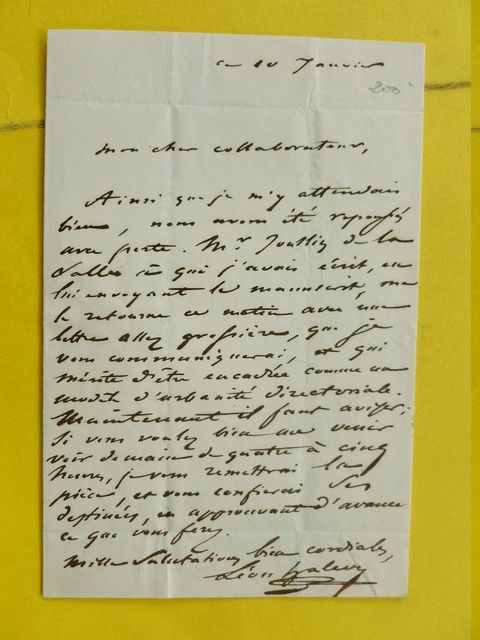 ce 10 Janvier
200
mon cher collaborateur,
Ainsi que je m'y attendais
bien, nous avons été repoussés
avec perte. Mr Jouslin de la
Salle à qui j'avais écrit, en
lui envoyant le manuscrit, me
le retourne ce matin avec une
lettre assez grossière, que je
vous communiquerai, et qui
mérite d'être encadrée comme un
modèle d'urbanité directoriale.
Maintenant il faut aviser;
Si vous voulez bien me venir
voir demain de quatre à cinq
heures, je vous remettrai la
pièce, et vous confierai ses
destinées, en approuvant d'avance
ce que vous ferez.
Mille Salutations bien cordiales,
Léon Halevy